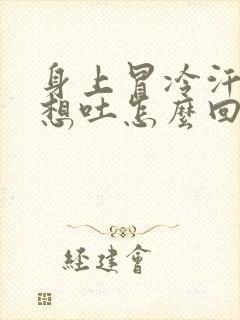 身上冒冷汗
想吐怎麼回
經建會